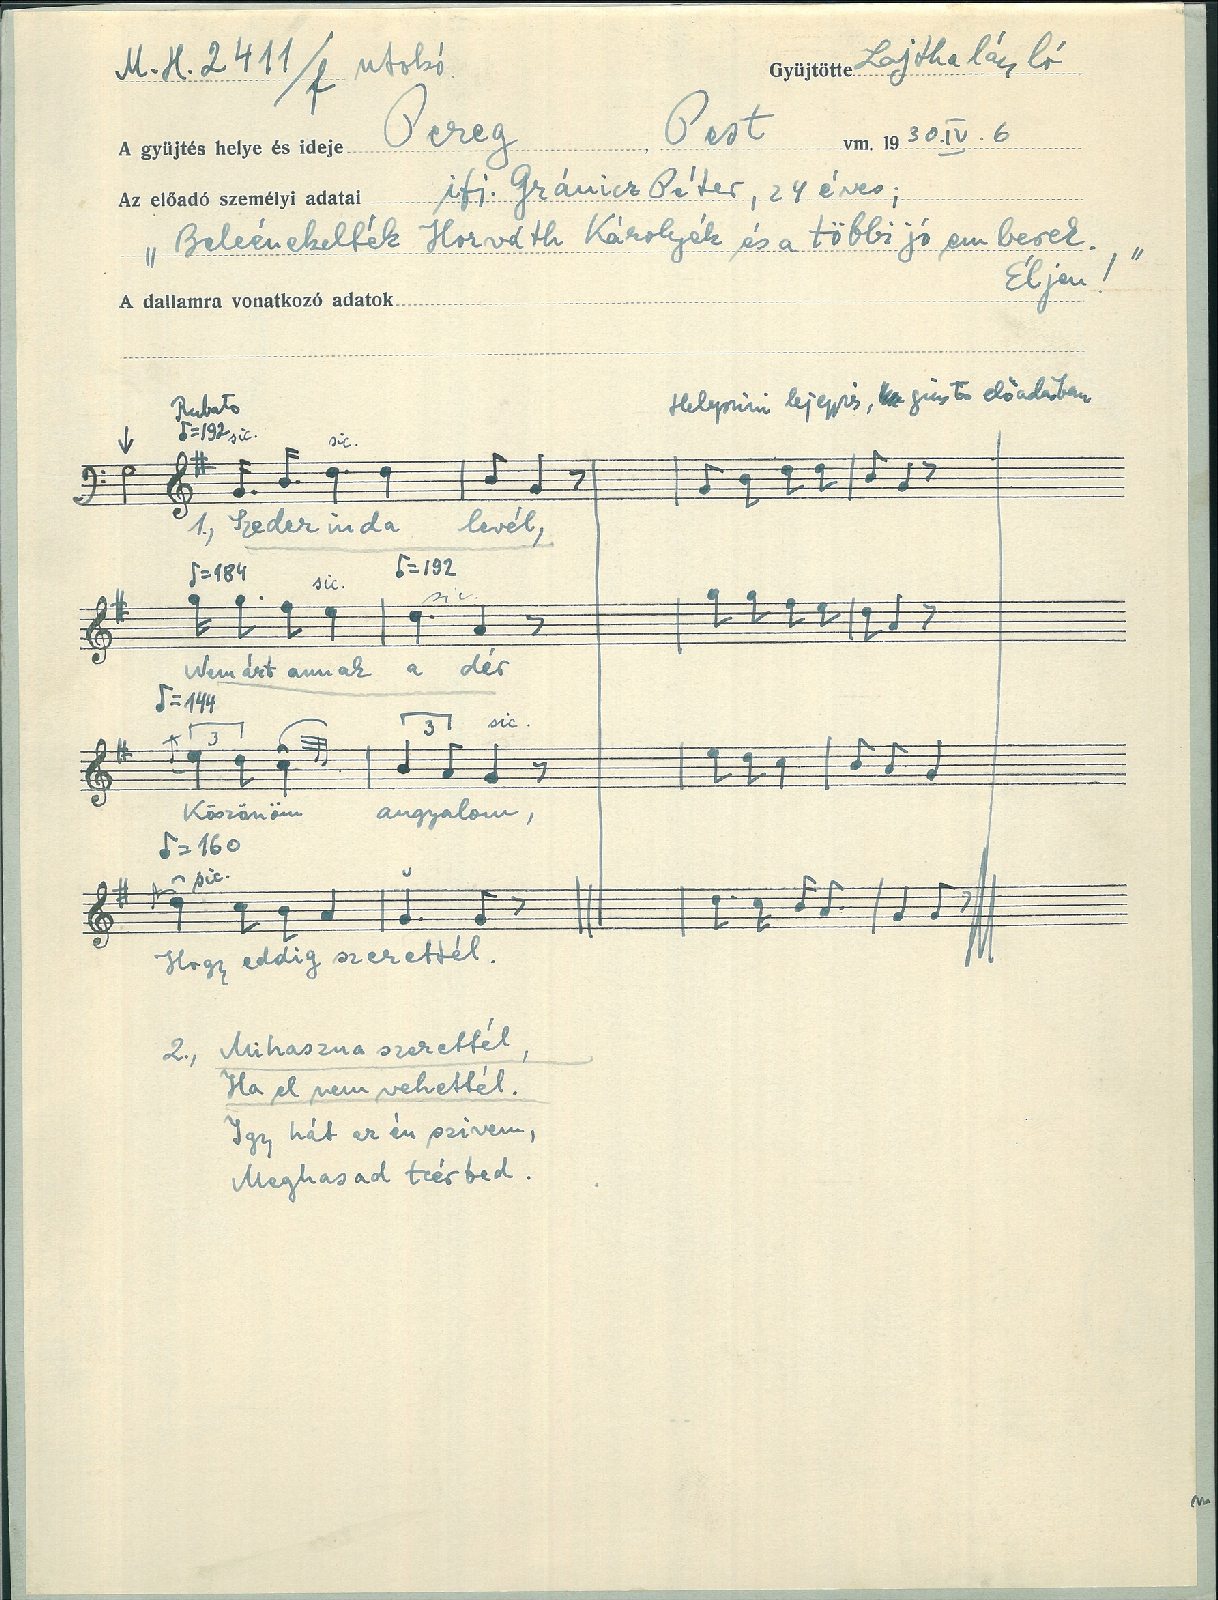 M.H. 2411/f utolsó.
Gyüjtötte Lajtha László
A gyüjtés helye és ideje Pereg, Pest vm. 1930.IV.6
Az előadó személyi adatai ifj. Gránicz Péter, 24 éves;
„Beleénekelték Horváth Károlyék és a többi jó emberek.
Éljen!"
A dallamra vonatkozó adatok
Rubato
Helyszini lejegyzés, giusto előadásban
♪=192 sic. sic.
1., Szederinda levél,
♪=184 sic. ♪=192
sic.
Nem árt annak a dér
♪=144
3 3 sic.
Köszönöm angyalom,
♪=160
sic.
Hogy eddig szerettél.
2., Mihaszna szerettél,
Ha el nem vehettél.
Igy hát az én szivem,
Meghasad teérted.